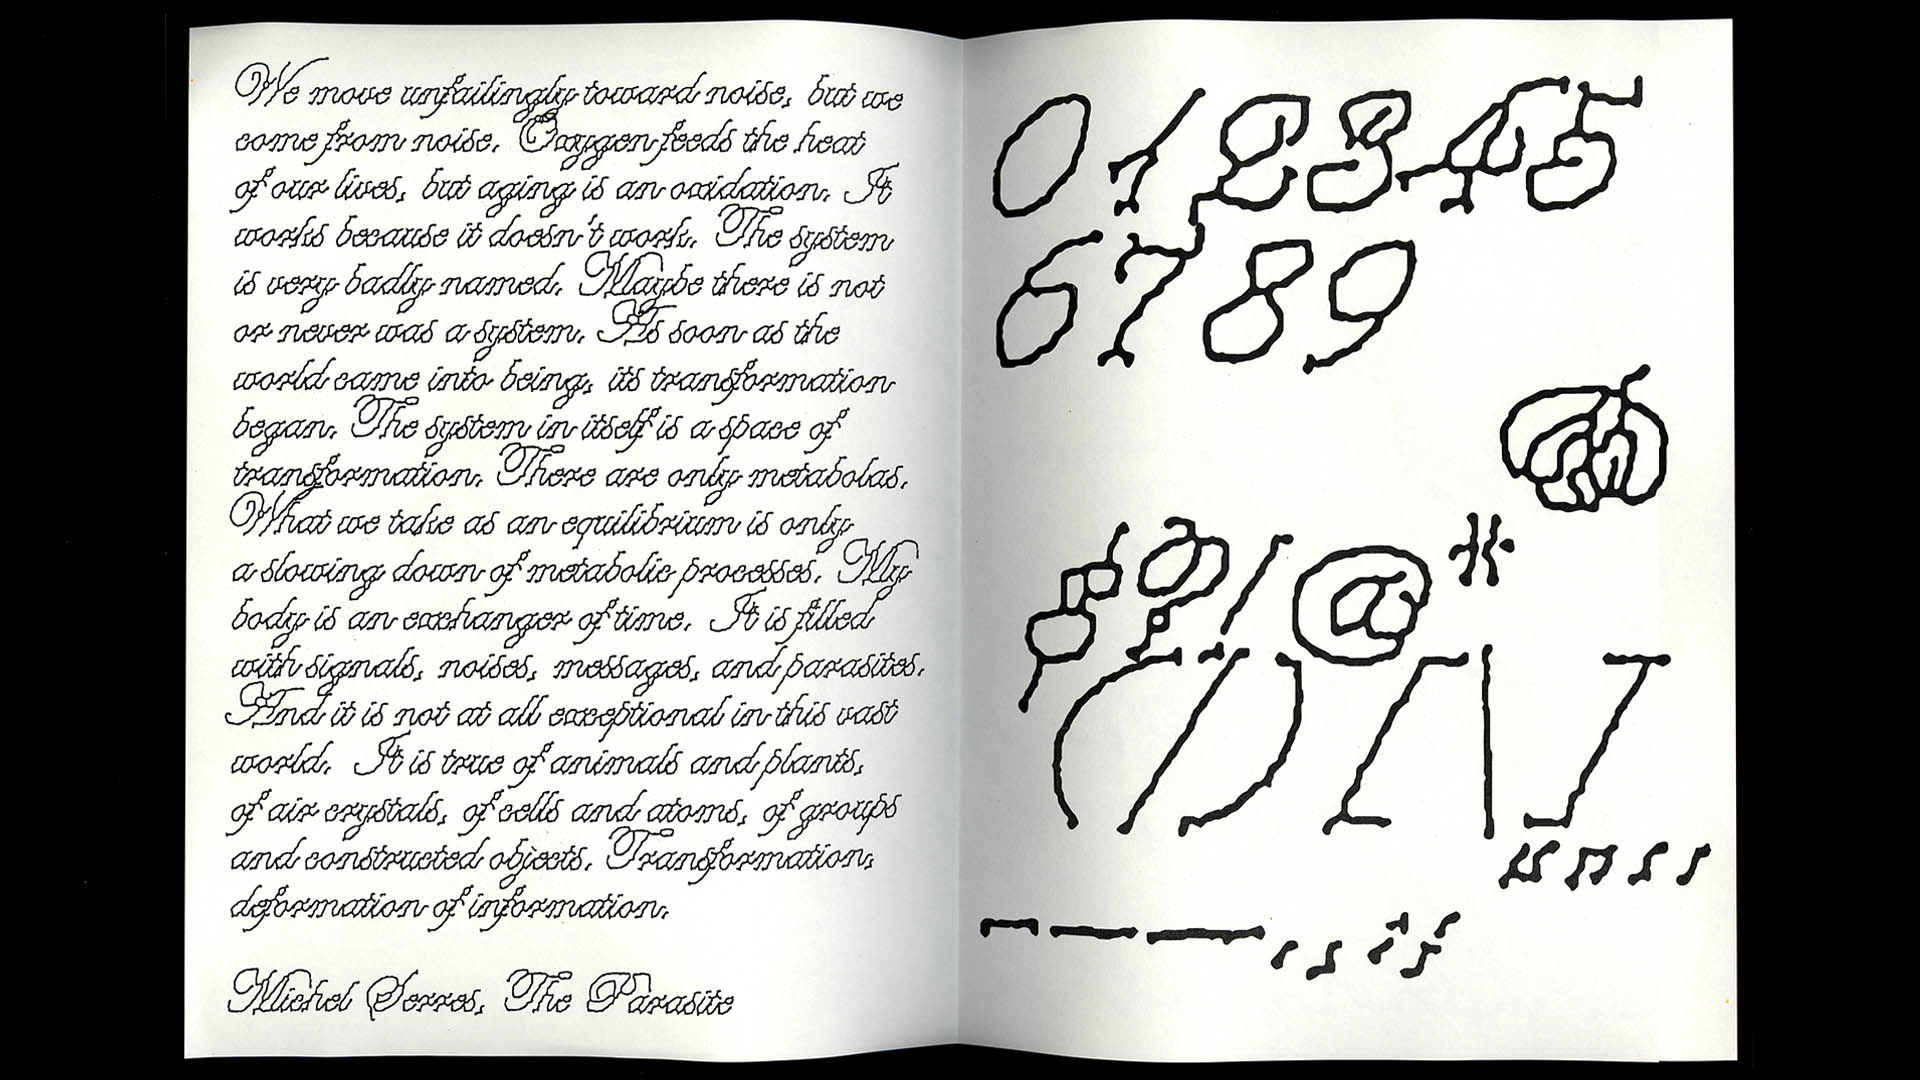 We move unfailingly toward noise, but we
come from noise. Oxygen feeds the heat
of our lives, but aging is an oxidation. It
works because it doesn't work. The system
is very badly named. Maybe there is not
or never was a system. As soon as the
world came into being, its transformation
began. The system in itself is a space of
transformation. There are only metabolas.
What we take as an equilibrium is only
a slowing down of metabolic processes. My
body is an exchanger of time. It is filled
with signals, noises, messages, and parasites.
And it is not at all exceptional in this vast
world. It is true of animals and plants,
of air crystals, of cells and atoms, of groups
and constructed objects. Transformation,
deformation of information.
Michel Serres, The Parasite
012345
6789
&?/@*
(/)[|]
- – —